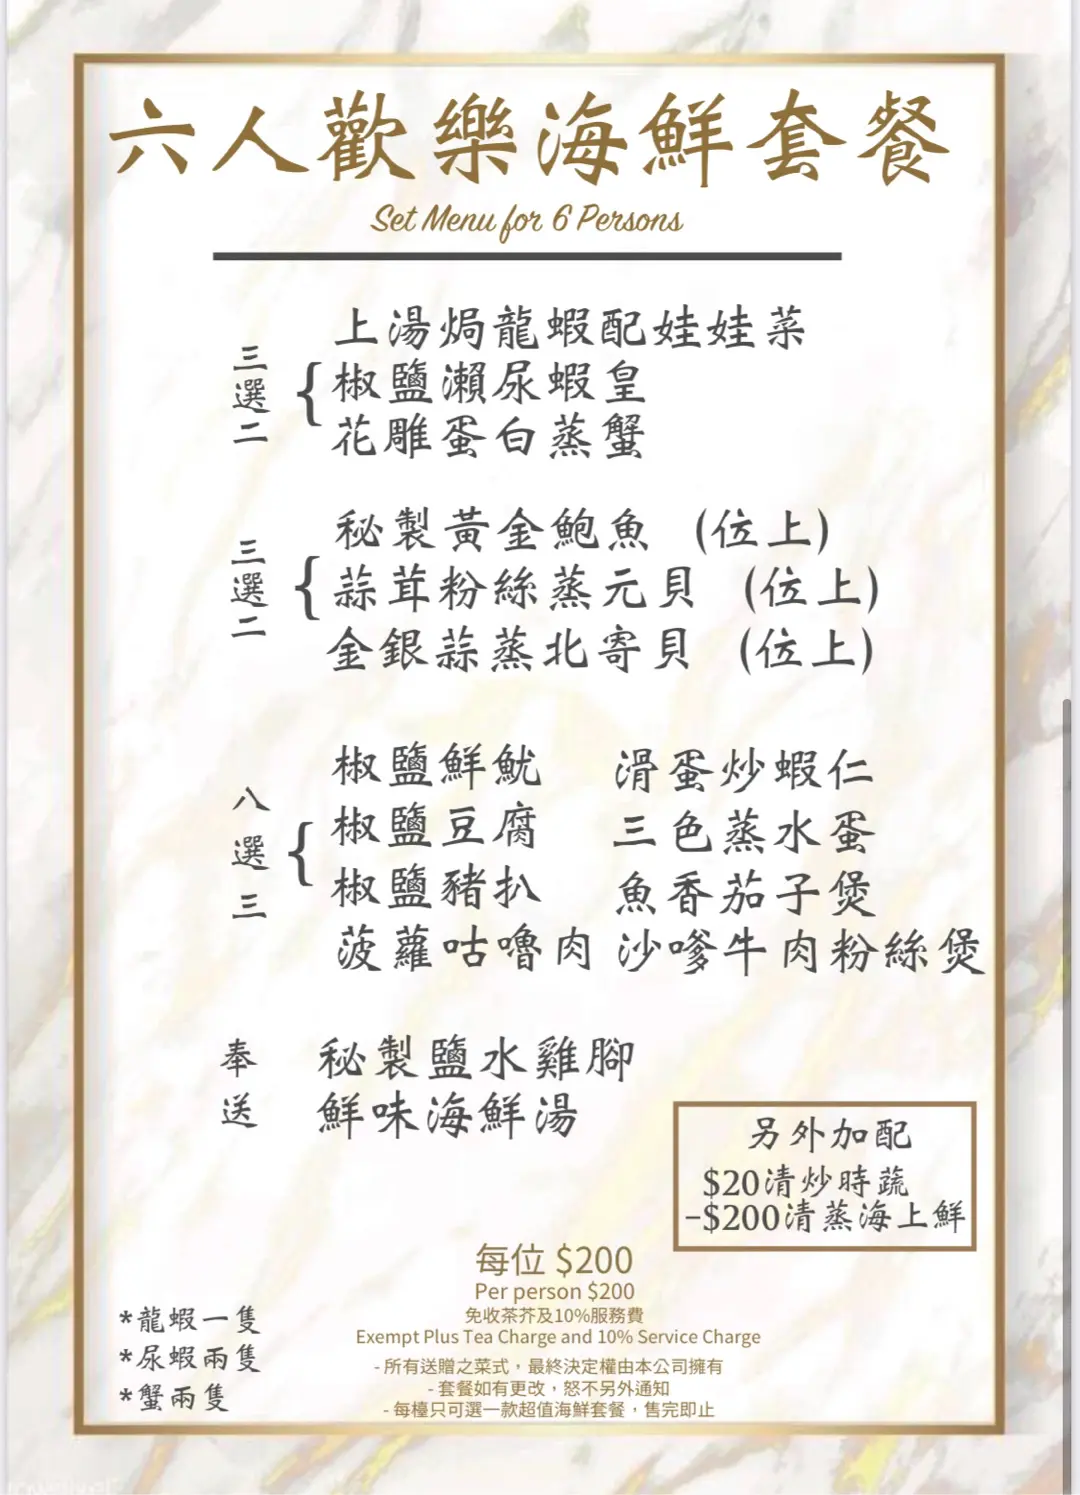 六人歡樂海鮮套餐
Set Menu for 6 Persons
三選二
上湯焗龍蝦配娃娃菜
椒鹽瀨尿蝦皇
花雕蛋白蒸蟹
三選二
秘製黃金鮑魚 (位上)
蒜茸粉絲蒸元貝 (位上)
金銀蒜蒸北寄貝 (位上)
八選三
椒鹽鮮魷 滑蛋炒蝦仁
椒鹽豆腐 三色蒸水蛋
椒鹽豬扒 魚香茄子煲
菠蘿咕嚕肉 沙嗲牛肉粉絲煲
奉送
秘製鹽水雞腳
鮮味海鮮湯
另外加配
$20清炒時蔬
-$200清蒸海上鮮
每位 $200
Per person $200
免收茶芥及10%服務費
Exempt Plus Tea Charge and 10% Service Charge
- 所有送贈之菜式，最終決定權由本公司擁有
- 套餐如有更改，怒不另外通知
- 每檯只可選一款超值海鮮套餐，售完即止
*龍蝦一隻
*尿蝦兩隻
*蟹兩隻